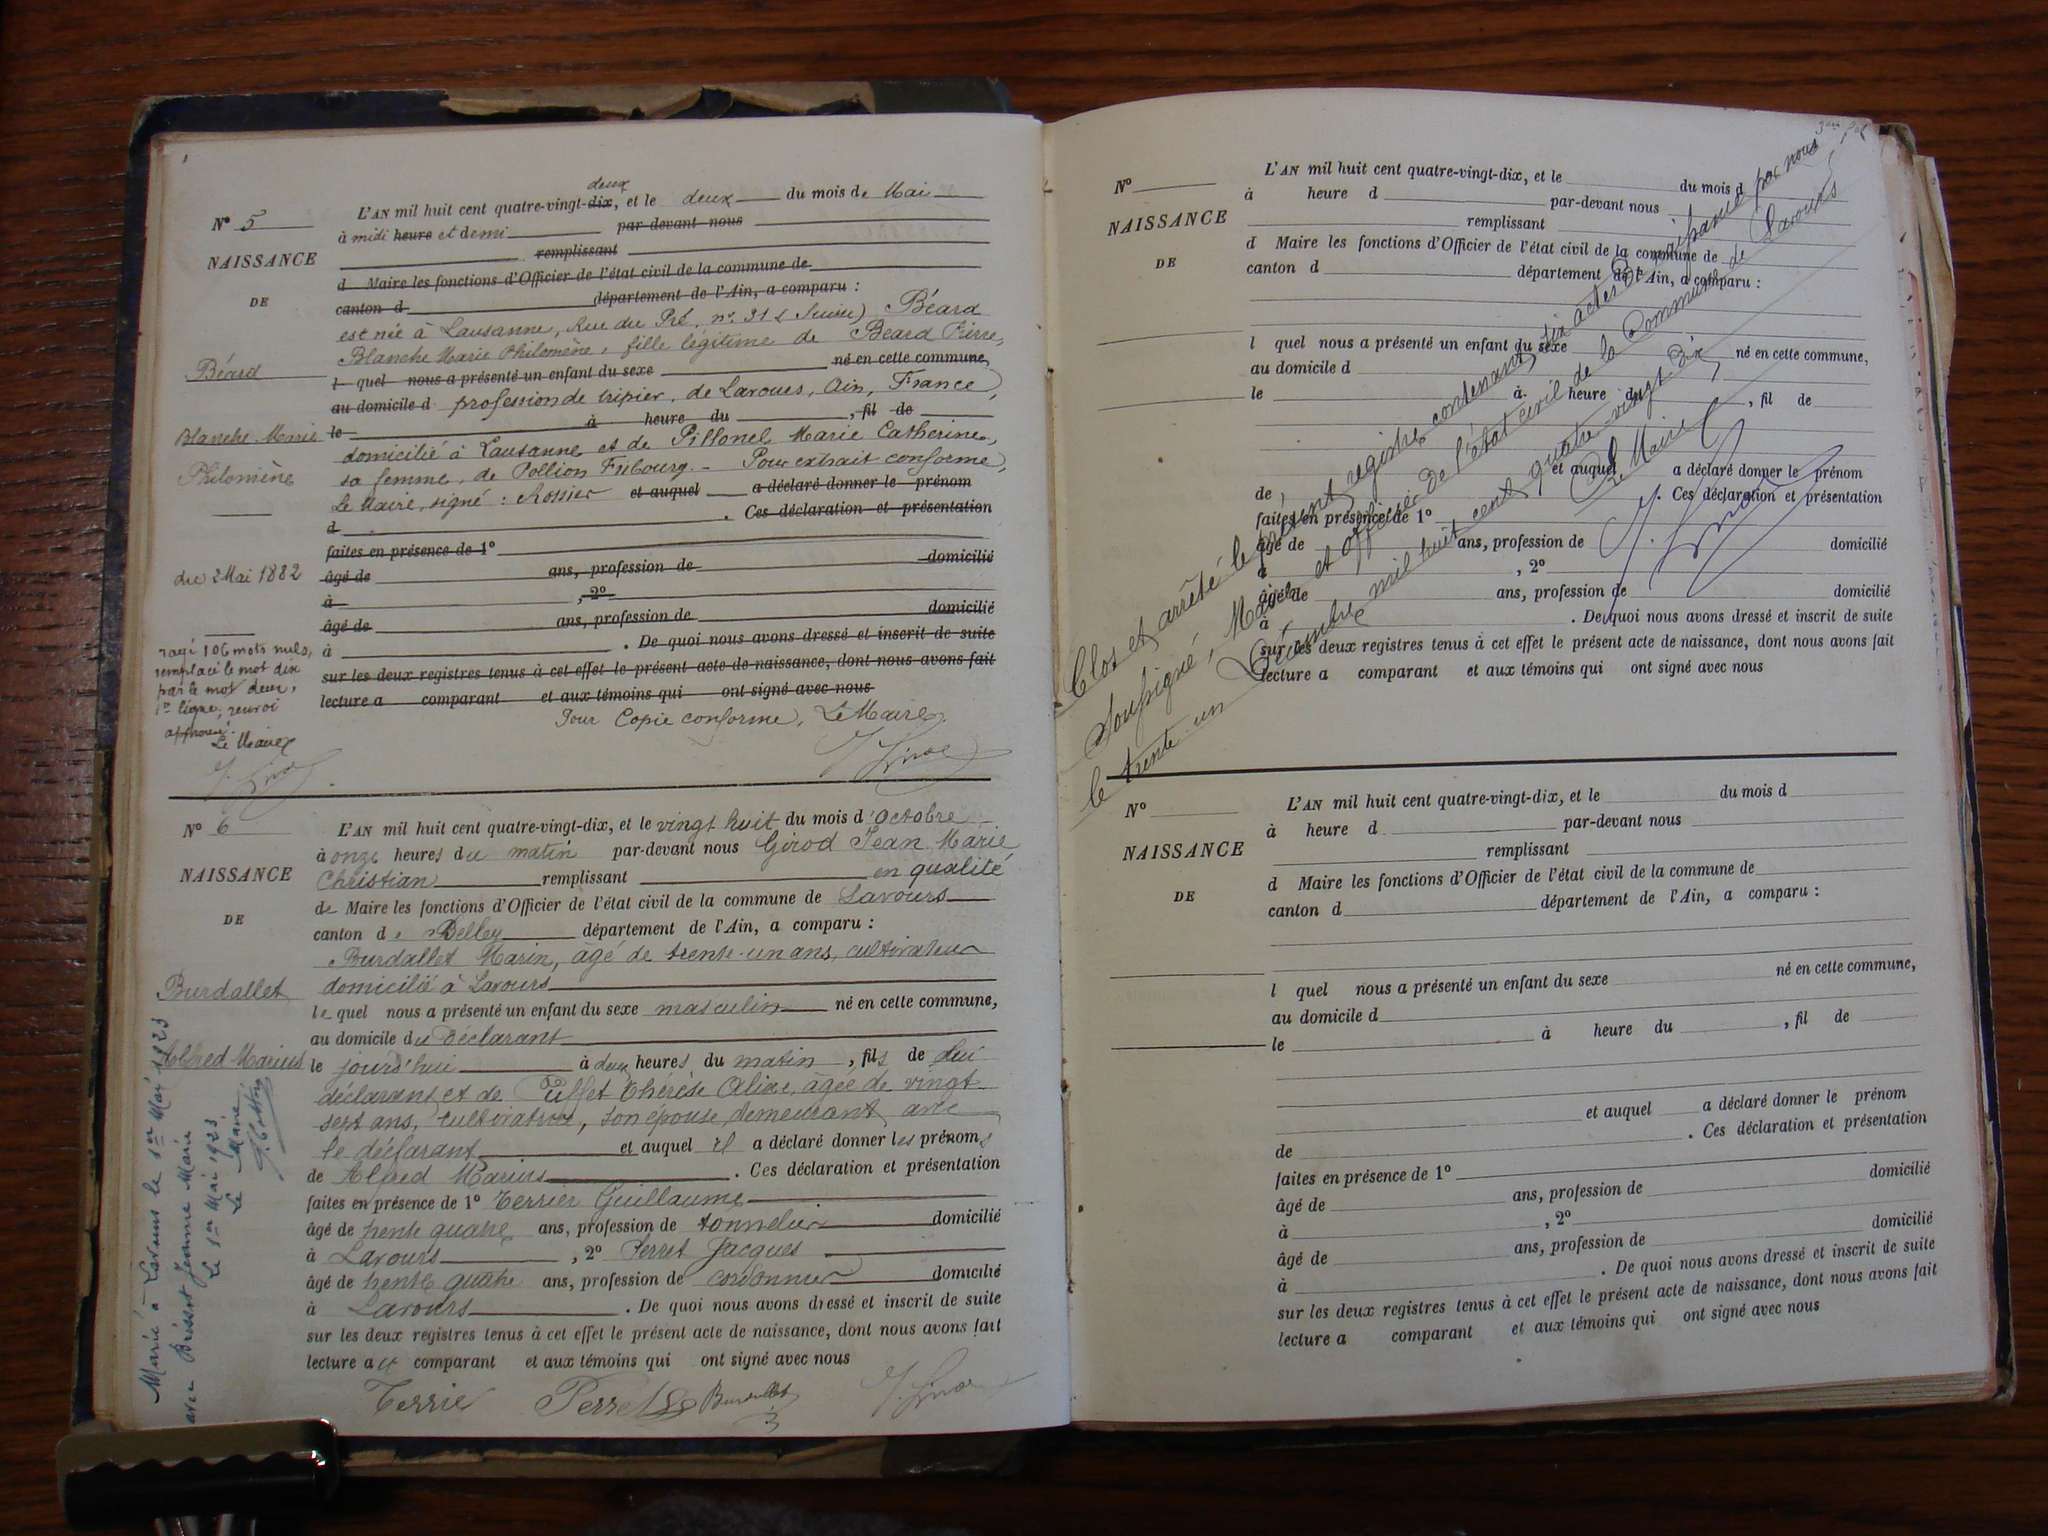 N° 5
NAISSANCE
DE
Béard
Blanche Marie
Philomène
du 2 Mai 1882
rayé 106 mots nuls,
remplacé le mot dix
par le mot deux,
1re ligne, renvoi
approuvé.
Le Maire
deux
L'AN mil huit cent quatre-vingt-dix, et le deux du mois de Mai
à midi heure et demi par-devant nous
remplissant
d Maire les fonctions d'Officier de l'état civil de la commune de
canton d département de l'Ain, a comparu :
est née à Lausanne, Rue du Pré, n° 31 (Suisse) Béard
Blanche Marie Philomène, fille légitime de Béard Pierre,
l quel nous a présenté un enfant du sexe né en cette commune,
au domicile d profession de tripier, de Lavours, Ain, France,
le à heure du , fil de
domicilié à Lausanne et de Pillonel Marie Catherine,
sa femme, de Pollion Fribourg. - Pour extrait conforme,
Le Maire, signé : Rossier et auquel a déclaré donner le prénom
d . Ces déclaration et présentation
faites en présence de 1°
âgé de ans, profession de domicilié
à , 2°
âgé de ans, profession de domicilié
à . De quoi nous avons dressé et inscrit de suite
sur les deux registres tenus à cet effet le présent acte de naissance, dont nous avons fait
lecture a comparant et aux témoins qui ont signé avec nous
Pour Copie conforme, Le Maire,
N° 6
NAISSANCE
DE
Burdallet
Alfred Marius
Marié à Lavours le 1er Mai 1923
avec Brissot Jeanne Marie
Le 1er Mai 1923
Le Maire
L'AN mil huit cent quatre-vingt-dix, et le vingt huit du mois d'Octobre
à onze heures du matin par-devant nous Girod Jean Marie
Christian remplissant en qualité
de Maire les fonctions d'Officier de l'état civil de la commune de Lavours
canton de Belley département de l'Ain, a comparu :
Burdallet Marin, âgé de trente-un ans, cultivateur
domicilié à Lavours
le quel nous a présenté un enfant du sexe masculin né en cette commune,
au domicile du déclarant
le jourd'hui à deux heures du matin, fils de lui
déclarant et de Thérèse Alixe, âgée de vingt
sept ans, cultivatrice, son épouse, demeurant avec
le déclarant et auquel il a déclaré donner les prénoms
de Alfred Marius . Ces déclaration et présentation
faites en présence de 1° Terrier Guillaume
âgé de trente quatre ans, profession de tonnelier domicilié
à Lavours , 2° Perret Jacques
âgé de trente quatre ans, profession de cordonnier domicilié
à Lavours . De quoi nous avons dressé et inscrit de suite
sur les deux registres tenus à cet effet le présent acte de naissance, dont nous avons fait
lecture au comparant et aux témoins qui ont signé avec nous
Terrie Perret Burdallet
N°
NAISSANCE
DE
L'AN mil huit cent quatre-vingt-dix, et le du mois d
à heure d par-devant nous
remplissant
d Maire les fonctions d'Officier de l'état civil de la commune de
canton d département de l'Ain, a comparu :
l quel nous a présenté un enfant du sexe né en cette commune,
au domicile d
le à heure du , fil de
et auquel a déclaré donner le prénom
de . Ces déclaration et présentation
faites en présence de 1°
âgé de ans, profession de domicilié
à , 2°
âgé de ans, profession de domicilié
à . De quoi nous avons dressé et inscrit de suite
sur les deux registres tenus à cet effet le présent acte de naissance, dont nous avons fait
lecture a comparant et aux témoins qui ont signé avec nous
Clos et arrêté le présent registre contenant six actes par nous
Soussigné, Maire et officier de l'état civil de la Commune de Lavours
le trente-un Décembre mil huit cent quatre-vingt-dix
Le Maire
N°
NAISSANCE
DE
L'AN mil huit cent quatre-vingt-dix, et le du mois d
à heure d par-devant nous
remplissant
d Maire les fonctions d'Officier de l'état civil de la commune de
canton d département de l'Ain, a comparu :
l quel nous a présenté un enfant du sexe né en cette commune,
au domicile d
le à heure du , fil de
et auquel a déclaré donner le prénom
de . Ces déclaration et présentation
faites en présence de 1°
âgé de ans, profession de domicilié
à , 2°
âgé de ans, profession de domicilié
à . De quoi nous avons dressé et inscrit de suite
sur les deux registres tenus à cet effet le présent acte de naissance, dont nous avons fait
lecture a comparant et aux témoins qui ont signé avec nous